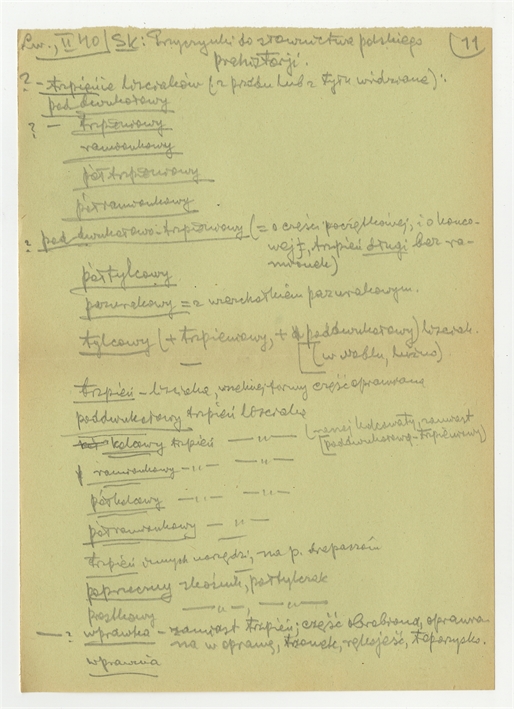 Lw., II 40 / SK: Przyczynki do słownictwa polskiego 11
prehistorji.
? – trzpienie liściaków (z przodu lub z tyłu widziane):
poddwukątowy
? – trzpieniowy
ramionkowy
półtrzpieniowy
półramionkowy
? poddwukątowo-trzpieniowy (= o części początkowej, i o końco-
wej, trzpień długi bez ra-
mionek)
półtylcowy
pazurakowy = z wierzchołkiem pazurakowym.
tylcowy (+ trzpieniowy, + poddwukątowy) liściak.
—
trzpień – liściaka, wszelkiej formy część oprawiana
poddwukątowy trzpień liściaka
kolcowy trzpień — „ — (raczej kolcowaty, zamiast
poddwukątowo-trzpieniowy)
ramionkowy – „ – — „ —
półkolcowy – „ – — „ —
półramionkowy – „ –
trzpień innych narzędzi, na p.
poprzeczny skośnik, półtylczak
— „ — , — „ —
— ? wprawka – zamiast trzpień; część obrobiona, oprawia-
na w oprawę, trzonek, rękojeść, toporzysko.
wprawnia